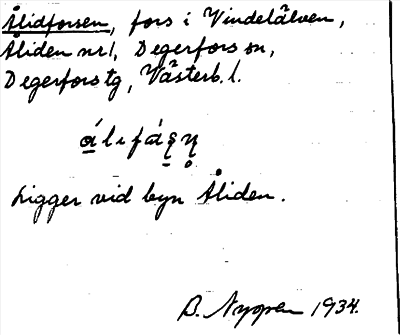 Ålidforsen, fors i Vindelälven,
Åliden nr 1, Degerfors sn,
Degerfors tg, Västerb. l.
Ligger vid byn Åliden.
B. Nygren 1934.